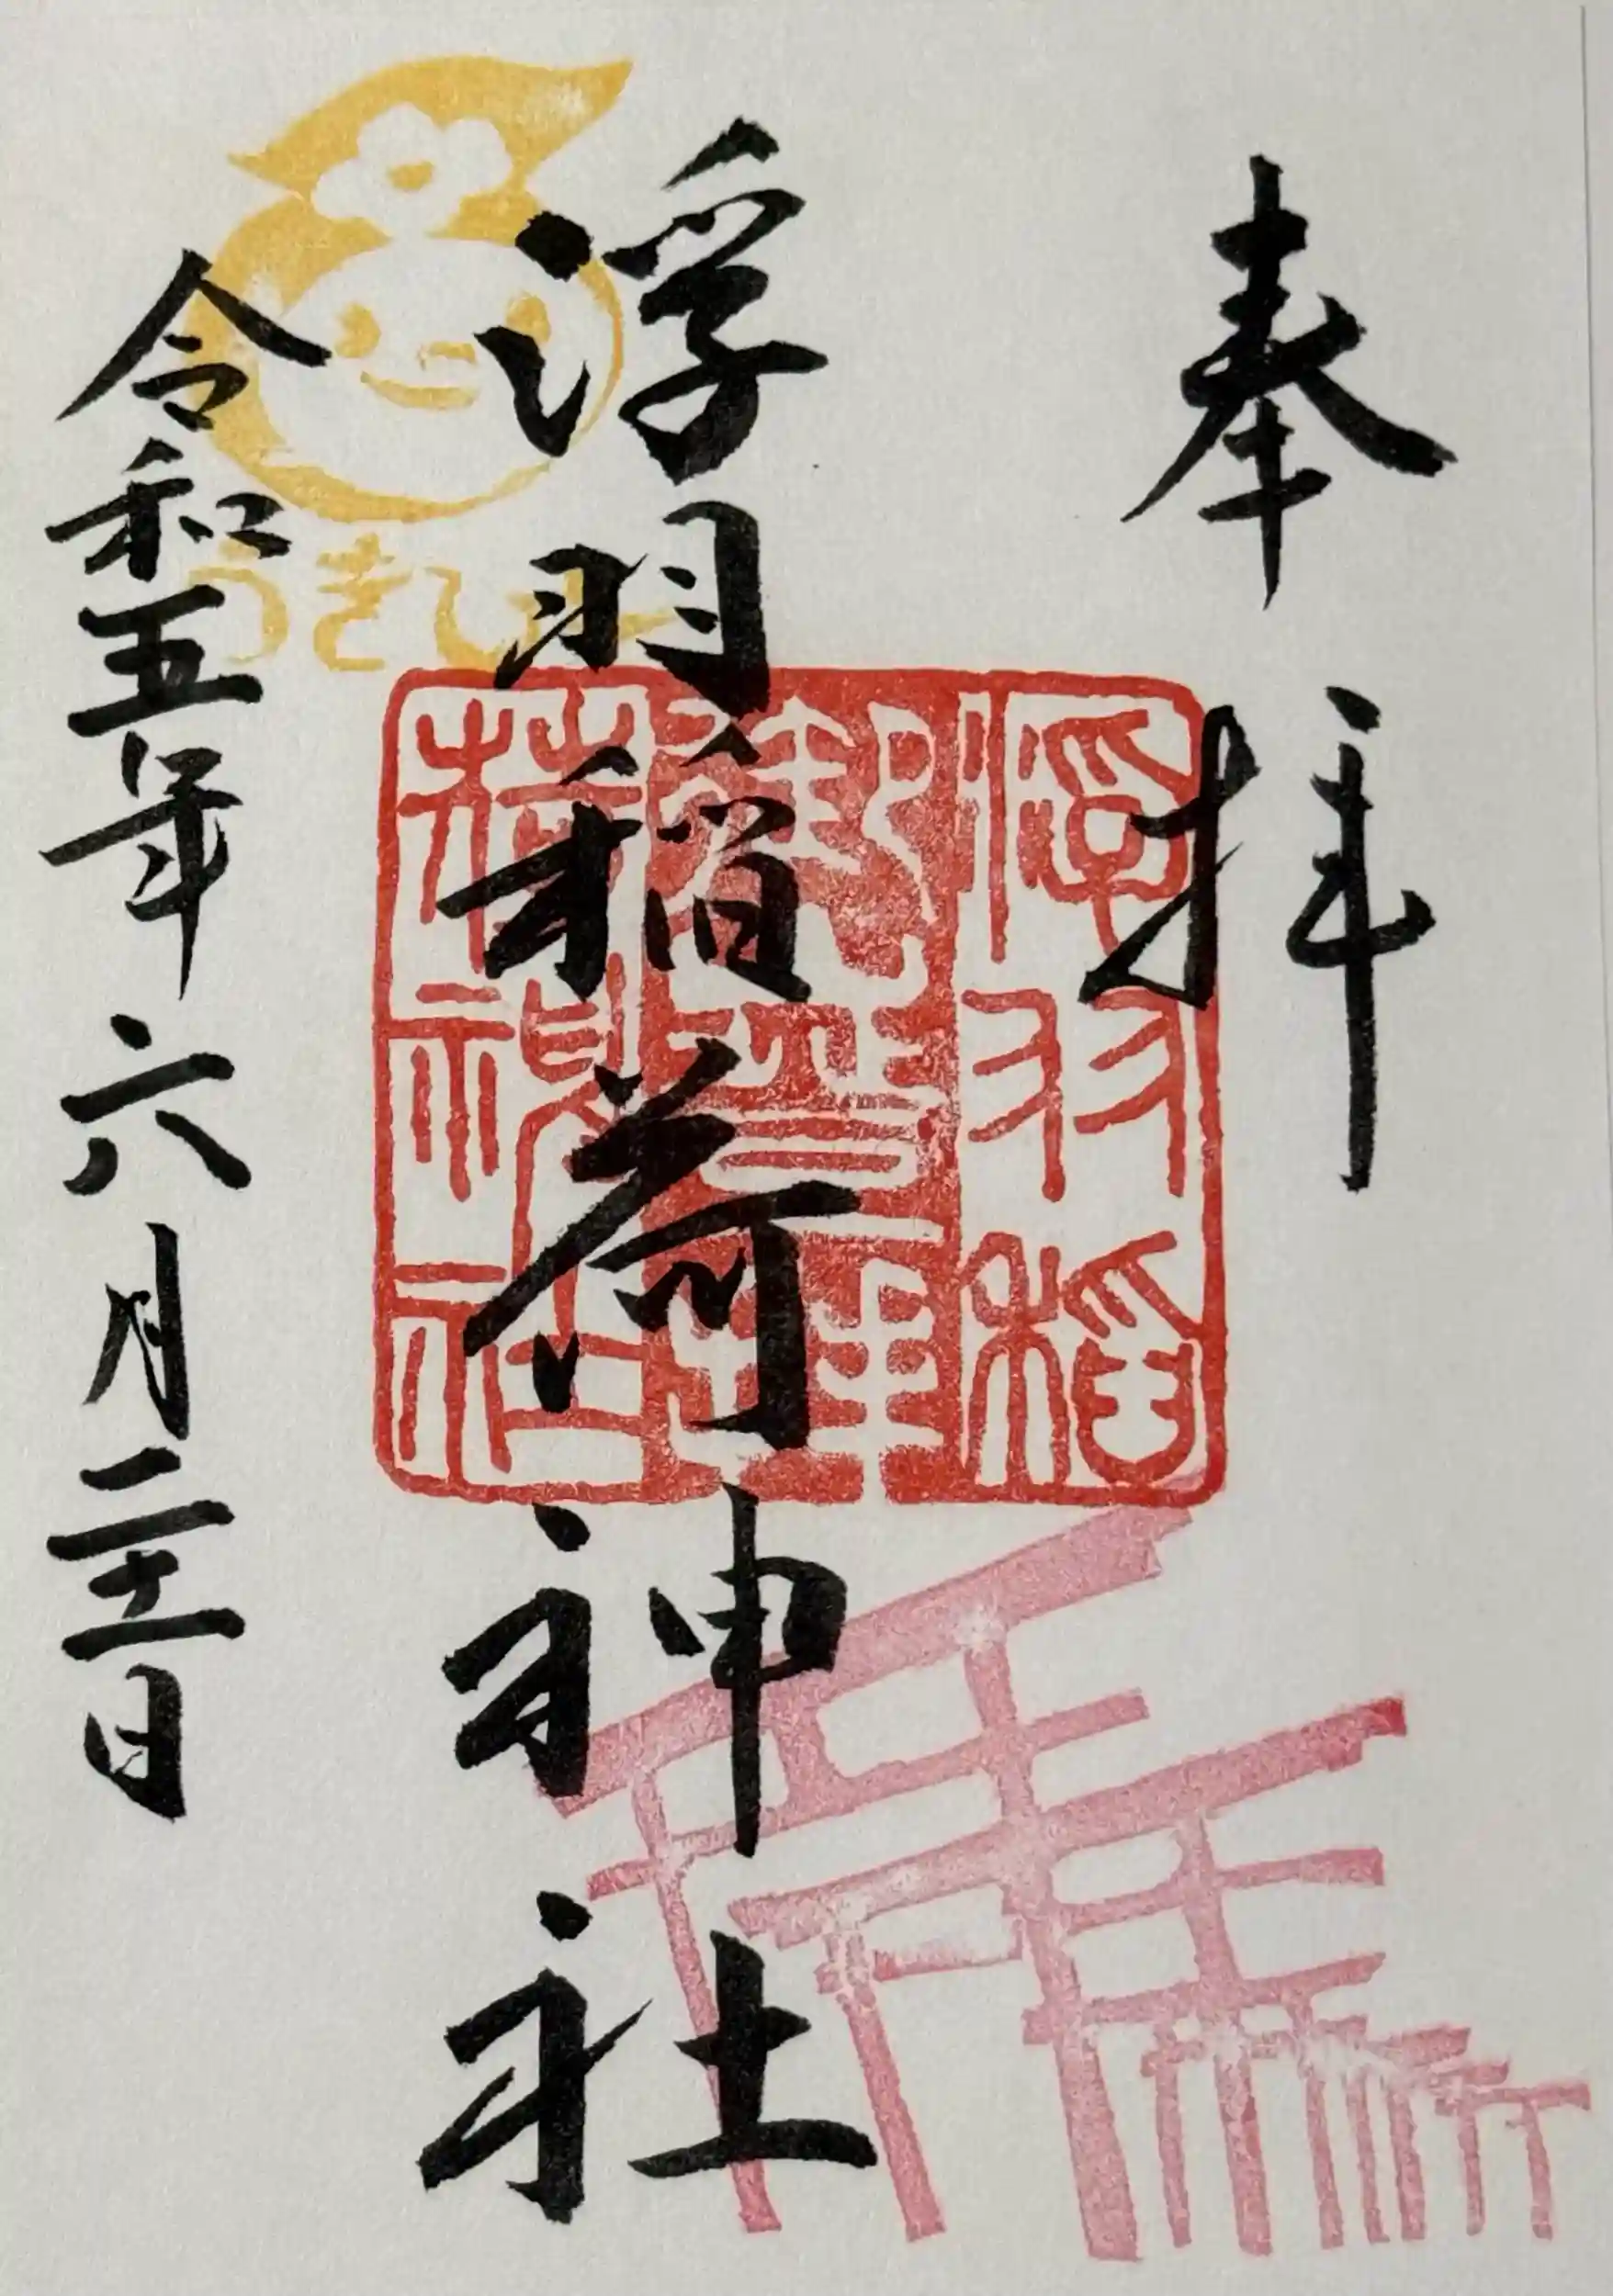 奉拝
浮羽稲荷神社
令和五年六月二十一日
うきぴー
浮羽稲
荷神社